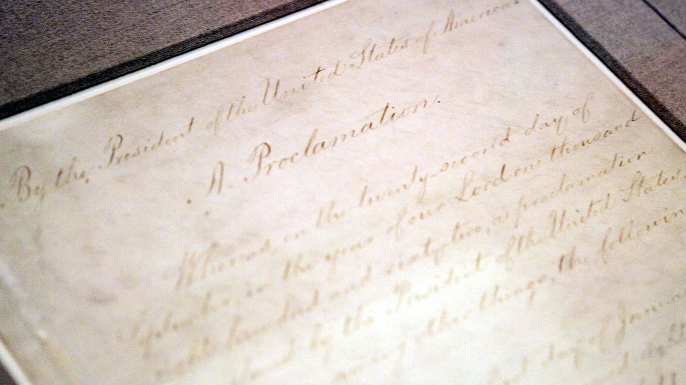 By the President of the United States of America
A Proclamation.
Whereas, on the twenty-second day of
September, in the year of our Lord one thousand
eight hundred and sixty-two, a proclamation
issued by the President of the United States,
among other things, the following
day of January